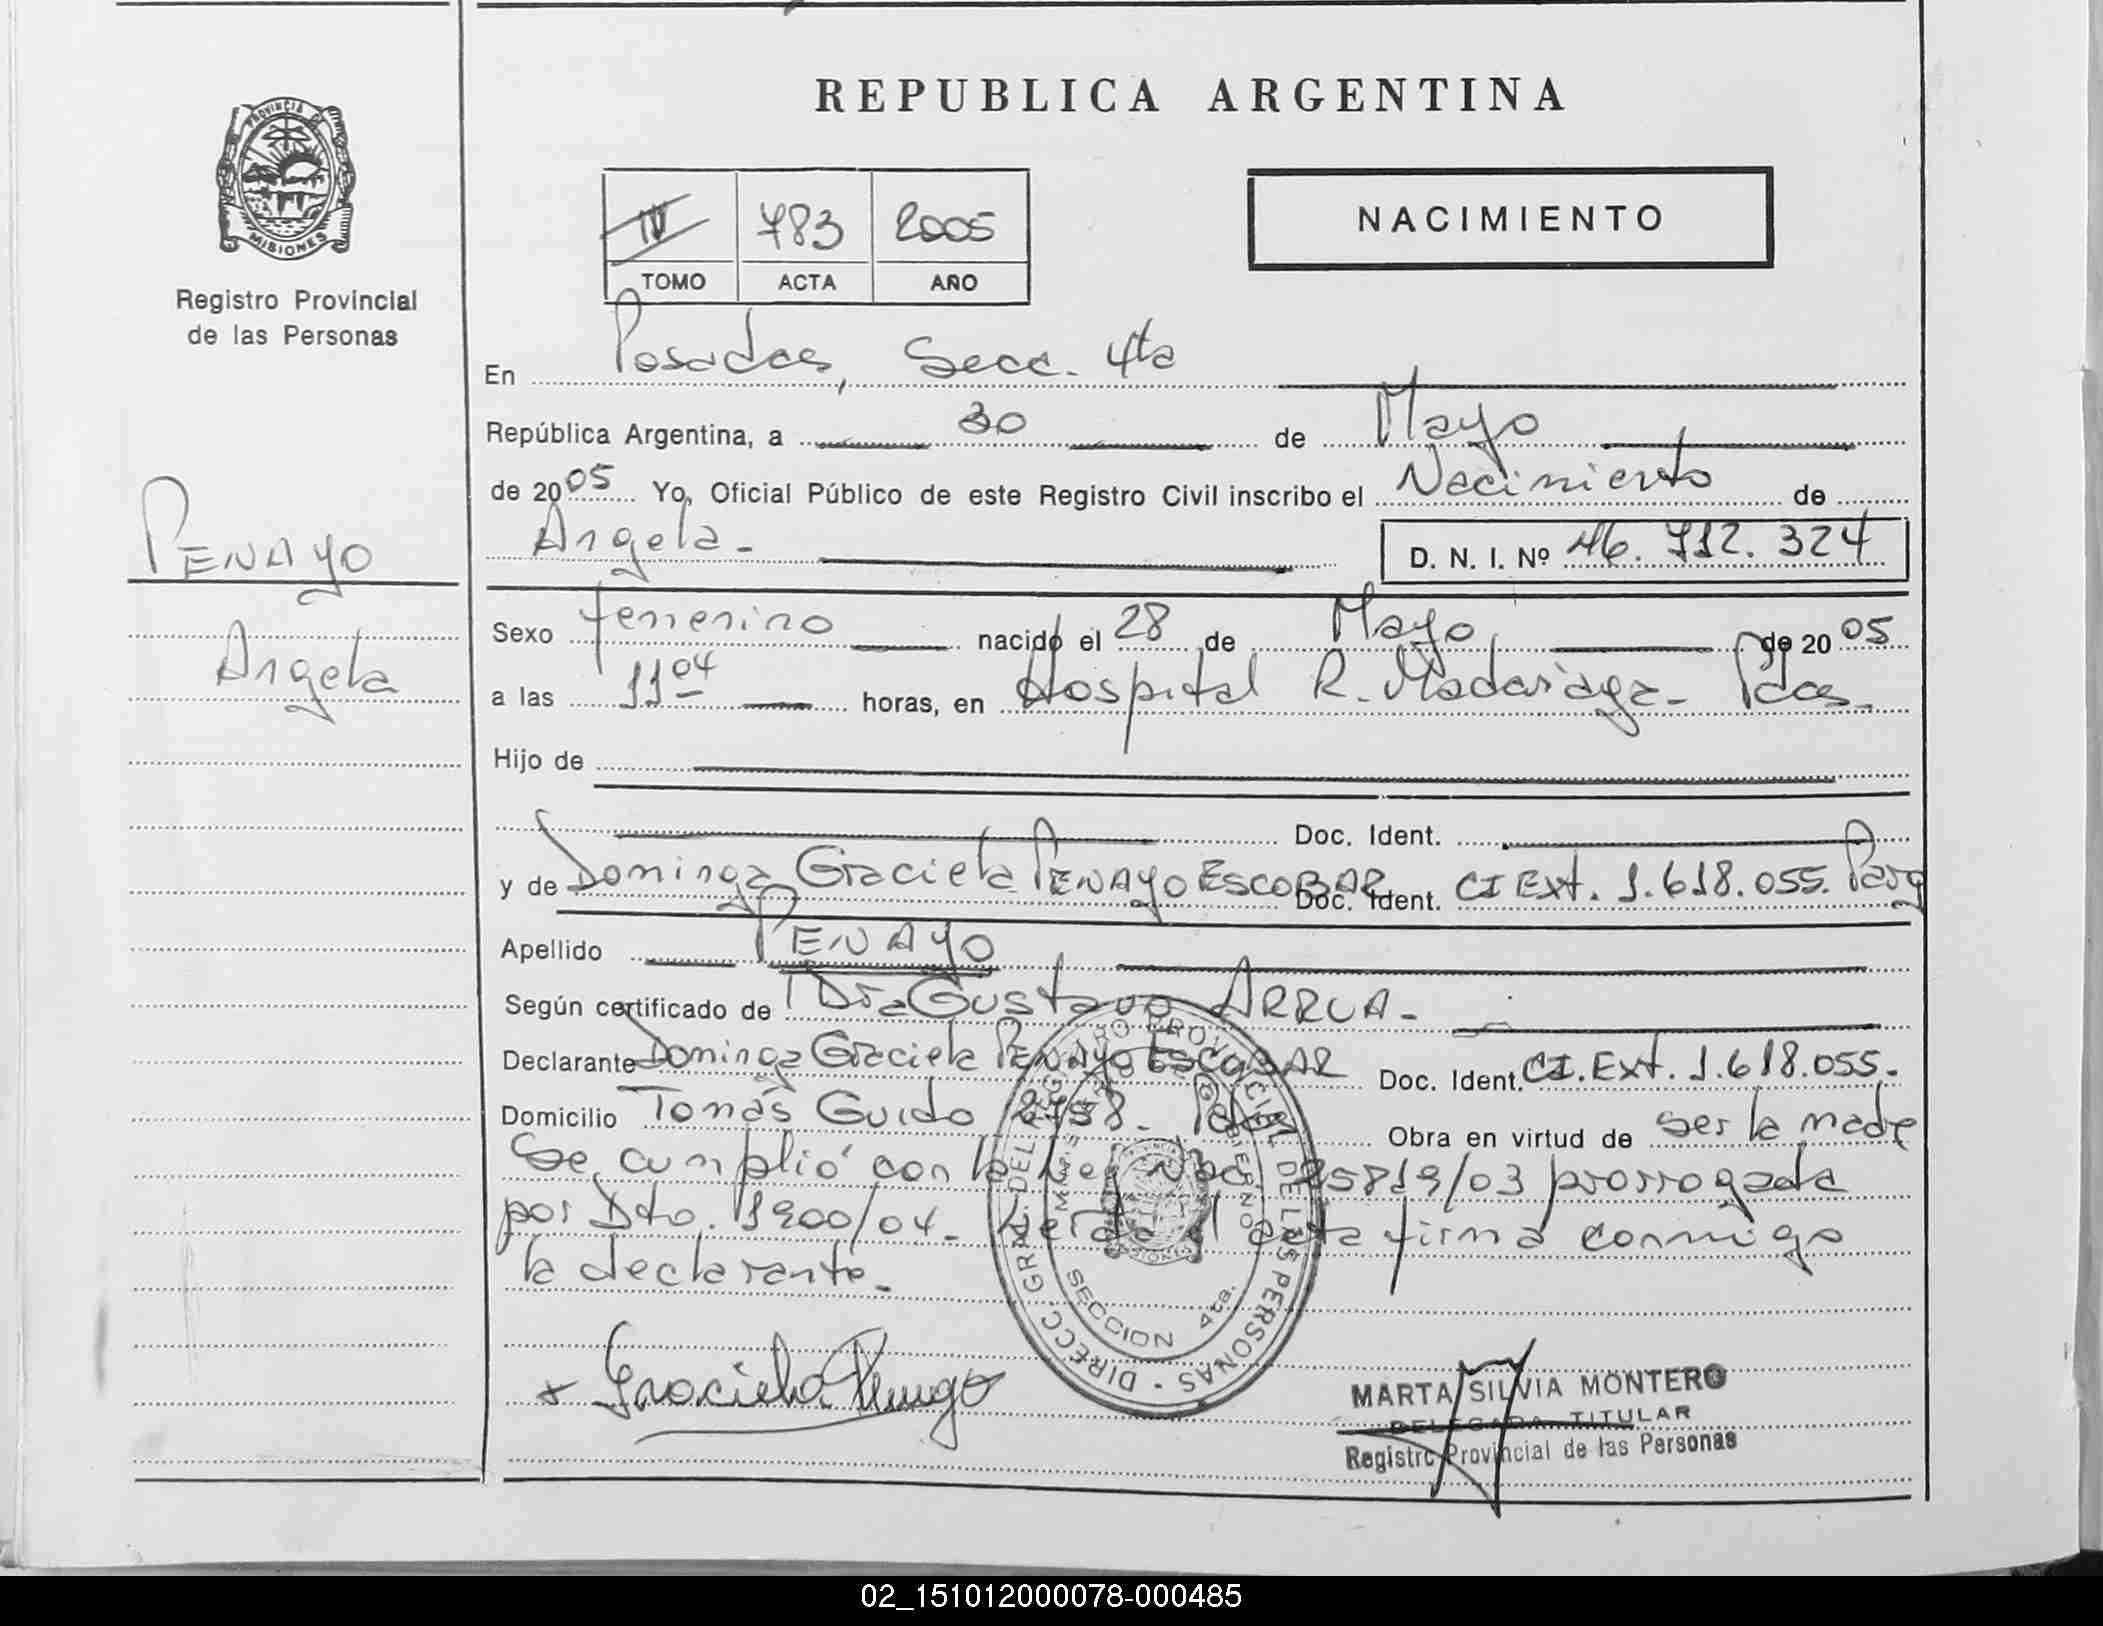 REPUBLICA ARGENTINA
PROVINCIA DE
MISIONES
Registro Provincial
de las Personas
IV 783 2005
TOMO ACTA AÑO
NACIMIENTO
En Posadas, Secc. 4ta
República Argentina, a 30 de Mayo
de 2005 Yo, Oficial Público de este Registro Civil inscribo el Nacimiento de
Angela.-
D. N. I. Nº 46.712.324
PENAYO
Angela
Sexo femenino nacido el 28 de Mayo de 2005
a las 11 04 horas, en Hospital R. Madariaga- Pdas.
Hijo de
Doc. Ident.
y de Dominga Graciela PENAYO ESCOBAR Doc. Ident. CI Ext. 1.618.055. Parg
Apellido PENAYO
Según certificado de Dra Gustavo ARRUA-
Declarante Dominga Graciela PENAYO ESCOBAR Doc. Ident. CI.Ext. 1.618.055.
Domicilio Tomás Guido 2758. Pdas Obra en virtud de ser la madre
Se cumplió con la Ley Nac 25819/03 prorrogada
por Dto. 1900/04- Leída el acta firma conmigo
la declarante.-
DIRECC. GRAL. DEL REGISTRO PROVINCIAL DE LAS PERSONAS
SECCION 4ta.
Graciela Penayo
MARTA SILVIA MONTERO
DELEGADA TITULAR
Registro Provincial de las Personas
02_151012000078-000485